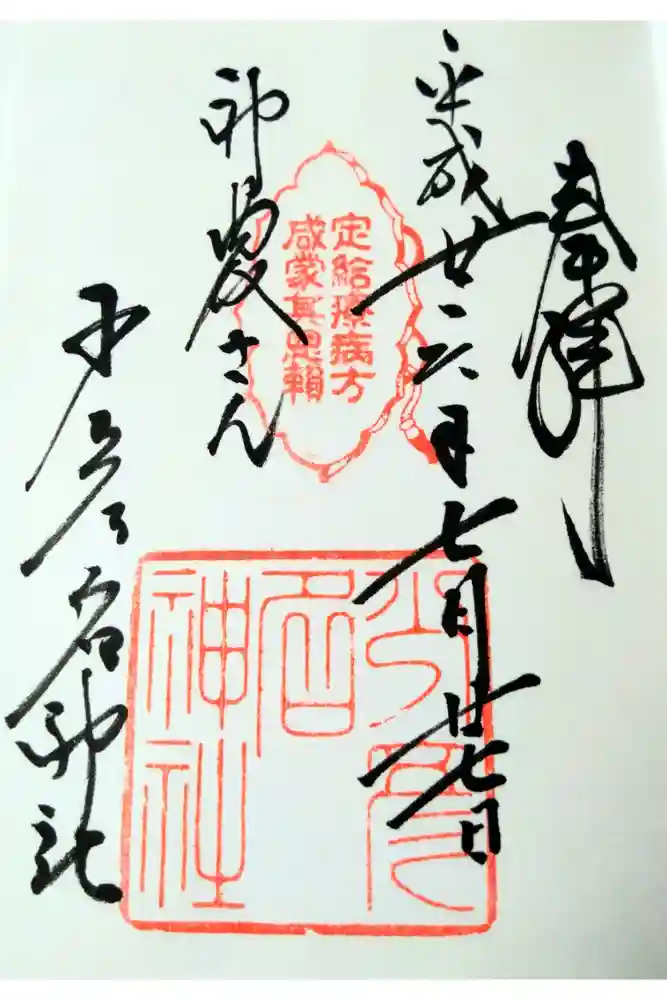 奉拝
平成廿六年七月廿七日
定給療病方
咸蒙其恩頼
神農さん
少彦名神社
少彦
名
神社